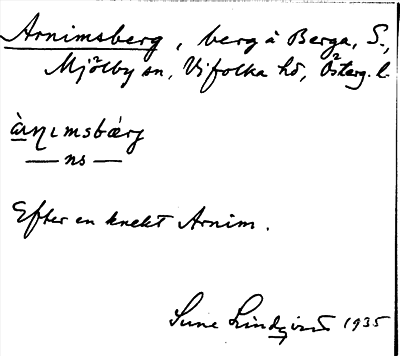 Arnimsberg, berg å Berga, S.,
Mjölby sn, Vifolka hd, Österg. l.
àɳɩmsbæ̀rj
— ns —
Efter en knekt Arnim.
Sune Lindqvist 1935